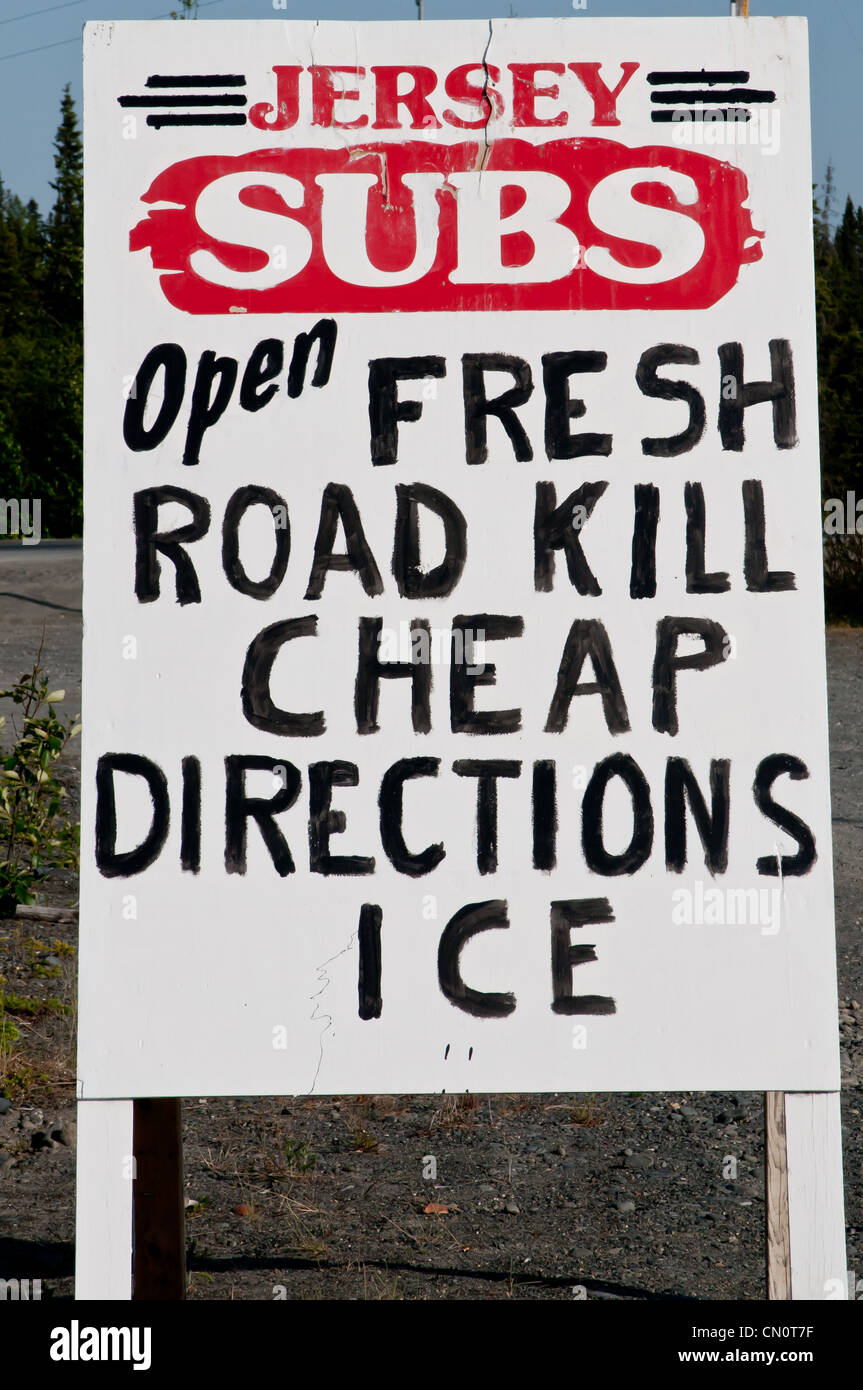 JERSEY
SUBS
Open FRESH
ROAD KILL
CHEAP
DIRECTIONS
ICE
alamy
Image ID: CN0T7F
www.alamy.com